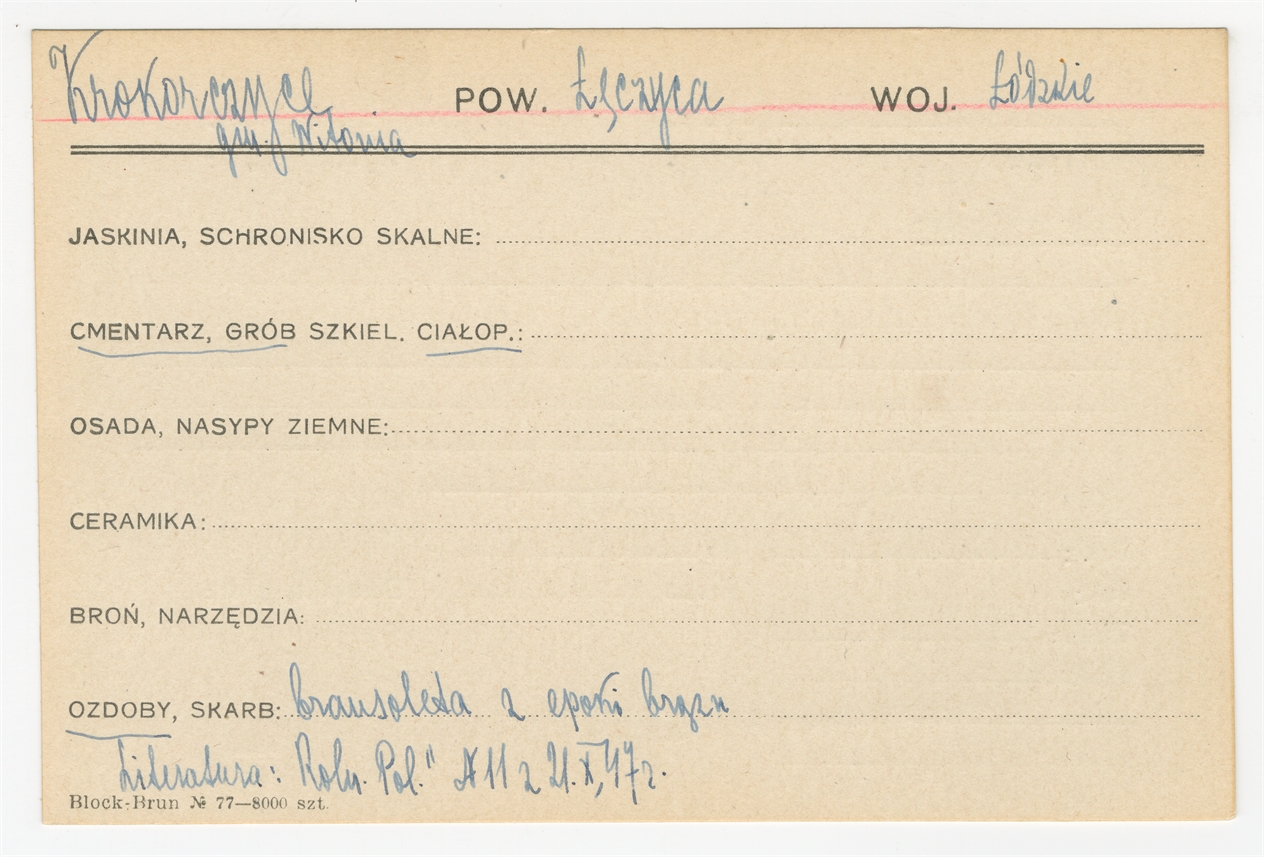 Krokorczyce POW. Łęczyca WOJ. Łódzkie
gm. Witonia
JASKINIA, SCHRONISKO SKALNE:
CMENTARZ, GRÓB SZKIEL. CIAŁOP.:
OSADA, NASYPY ZIEMNE:
CERAMIKA:
BROŃ, NARZĘDZIA:
OZDOBY, SKARB: bransoleta z epoki brązu
Literatura: Roln. Pol." N 11 z 21. X, 47 r.
Block-Brun № 77—8000 szt.